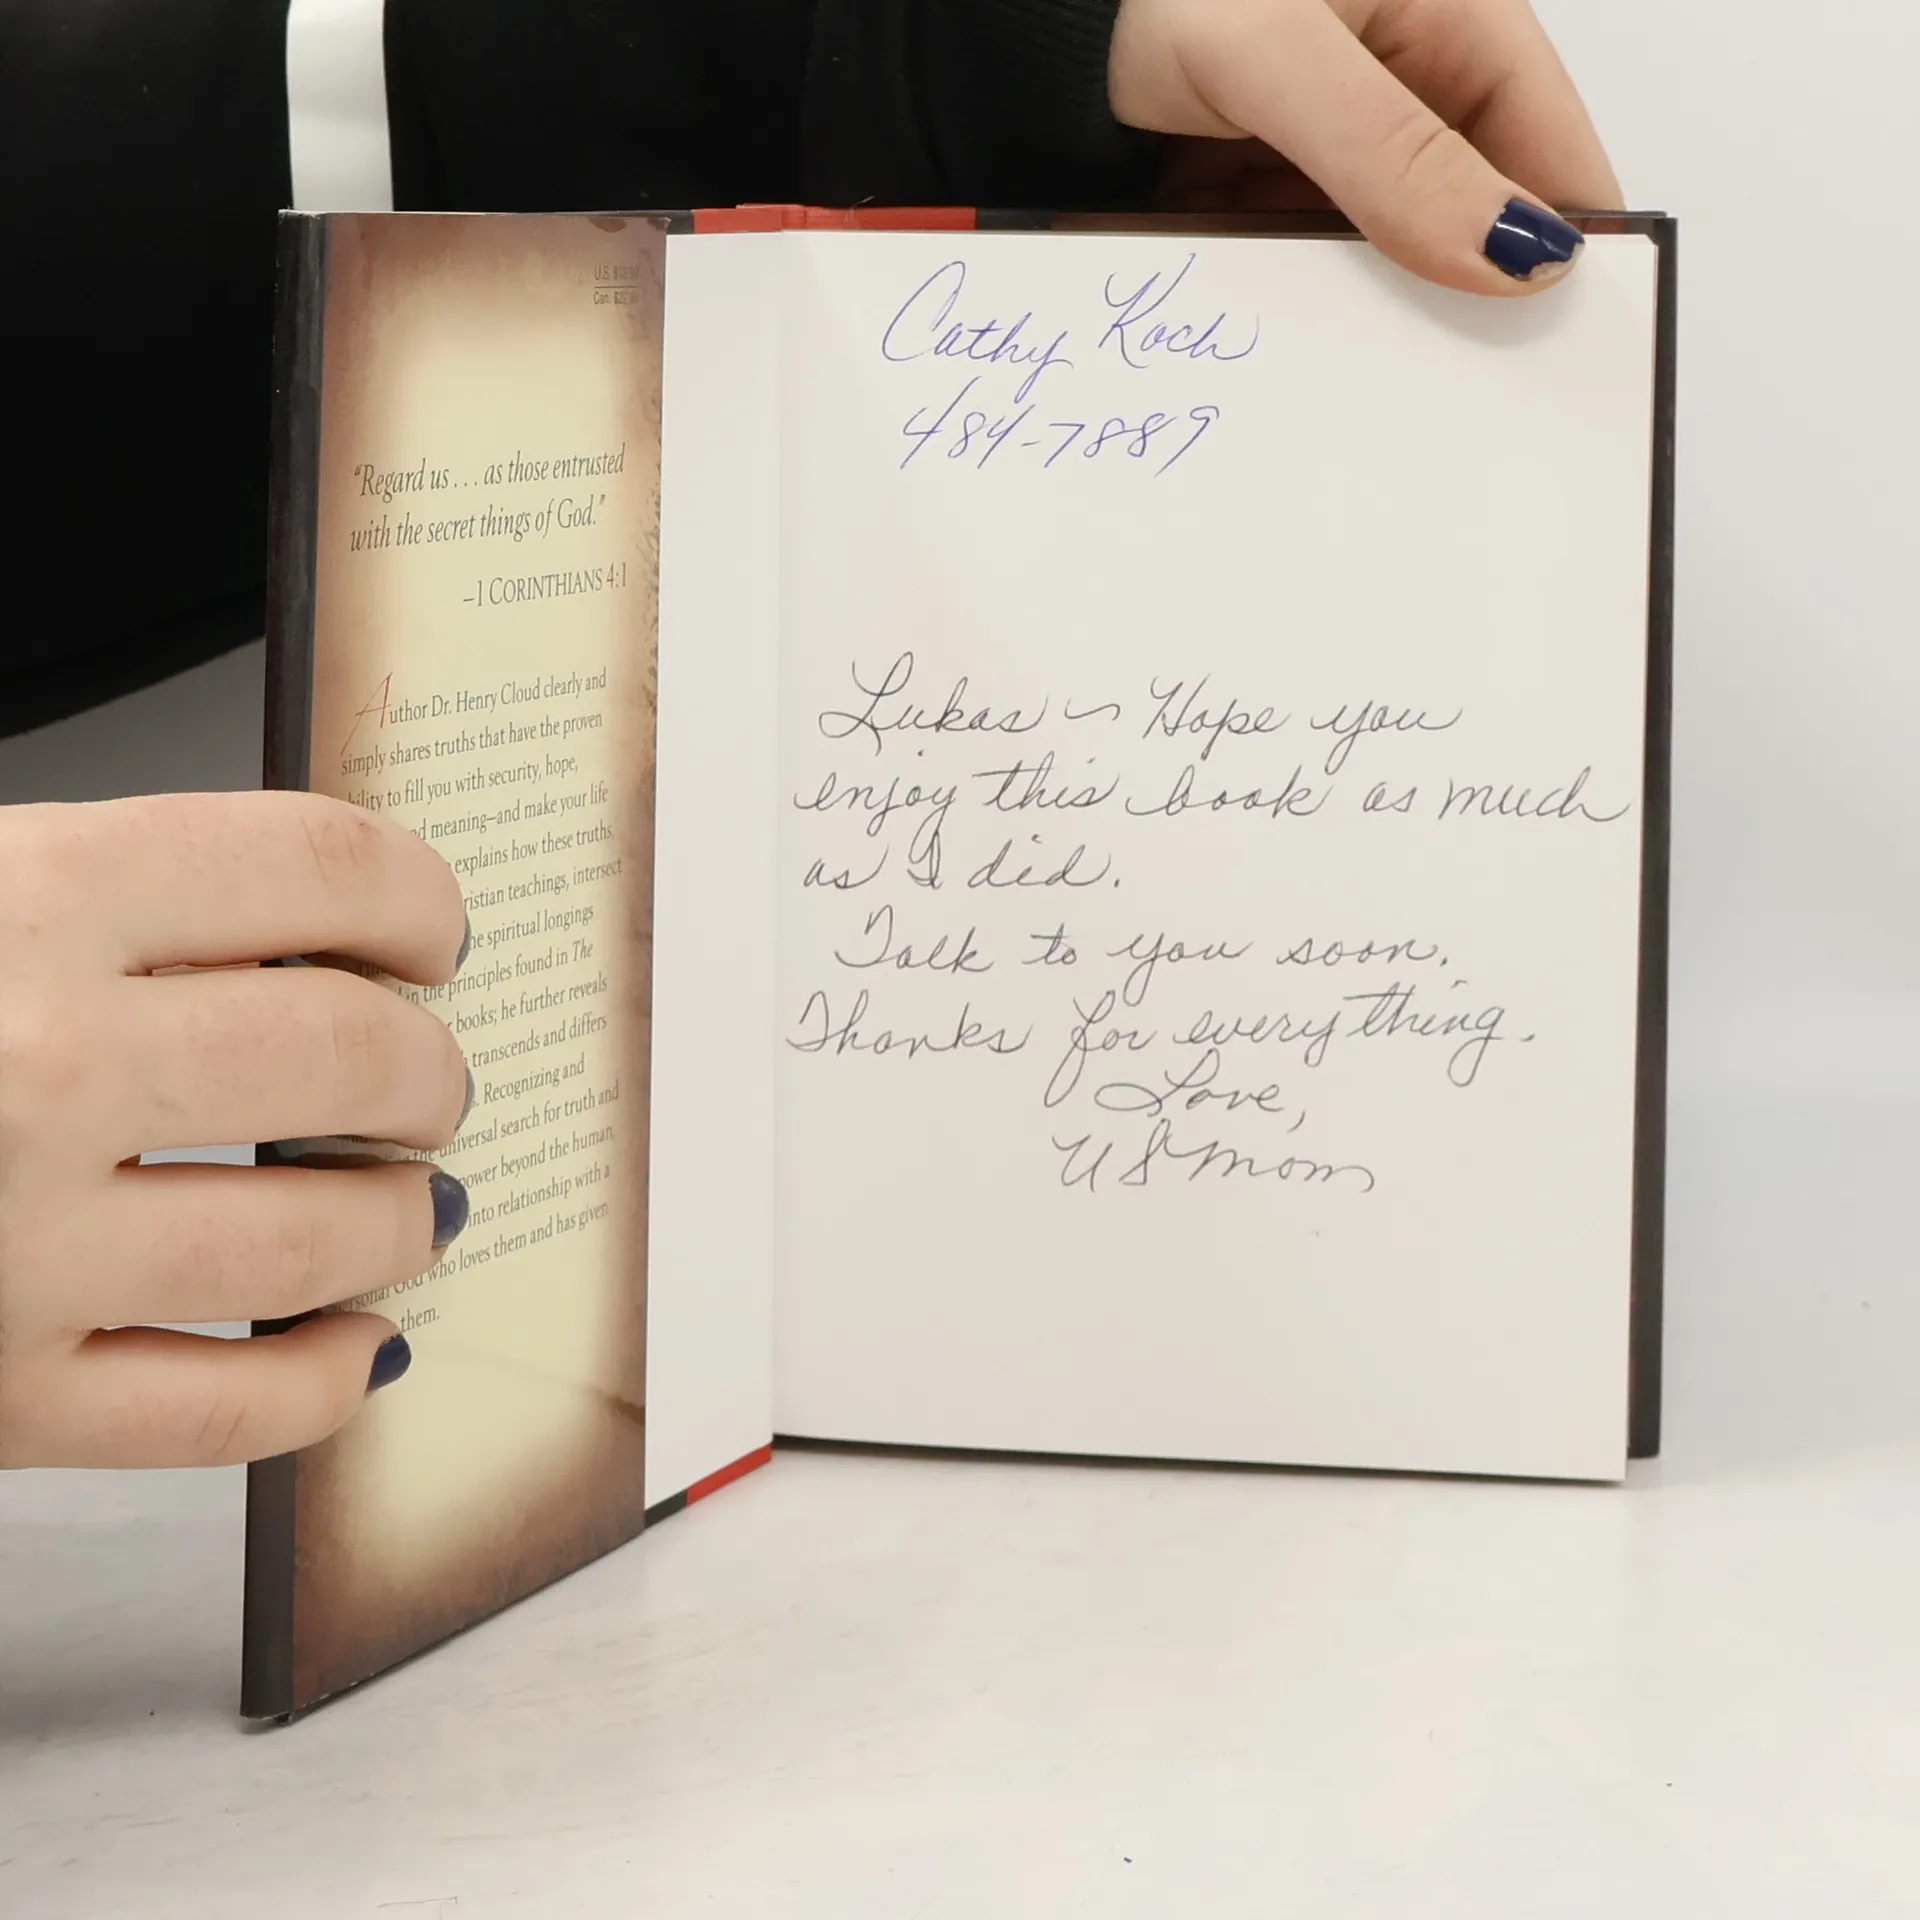 U.S. $18.99
Can. $22.99
"Regard us . . . as those entrusted
with the secret things of God."
–1 CORINTHIANS 4:1
Author Dr. Henry Cloud clearly and
simply shares truths that have the proven
to fill you with security, hope,
meaning–and make your life
explains how these truths,
teachings, intersect
spiritual longings
in the principles found in The
books; he further reveals
transcends and differs
Recognizing and
the universal search for truth and
power beyond the human,
into relationship with a
God who loves them and has given
them.
Cathy Koch
484-7889
Lukas ~ Hope you
enjoy this book as much
as I did.
Talk to you soon.
Thanks for everything.
Love,
US Mom